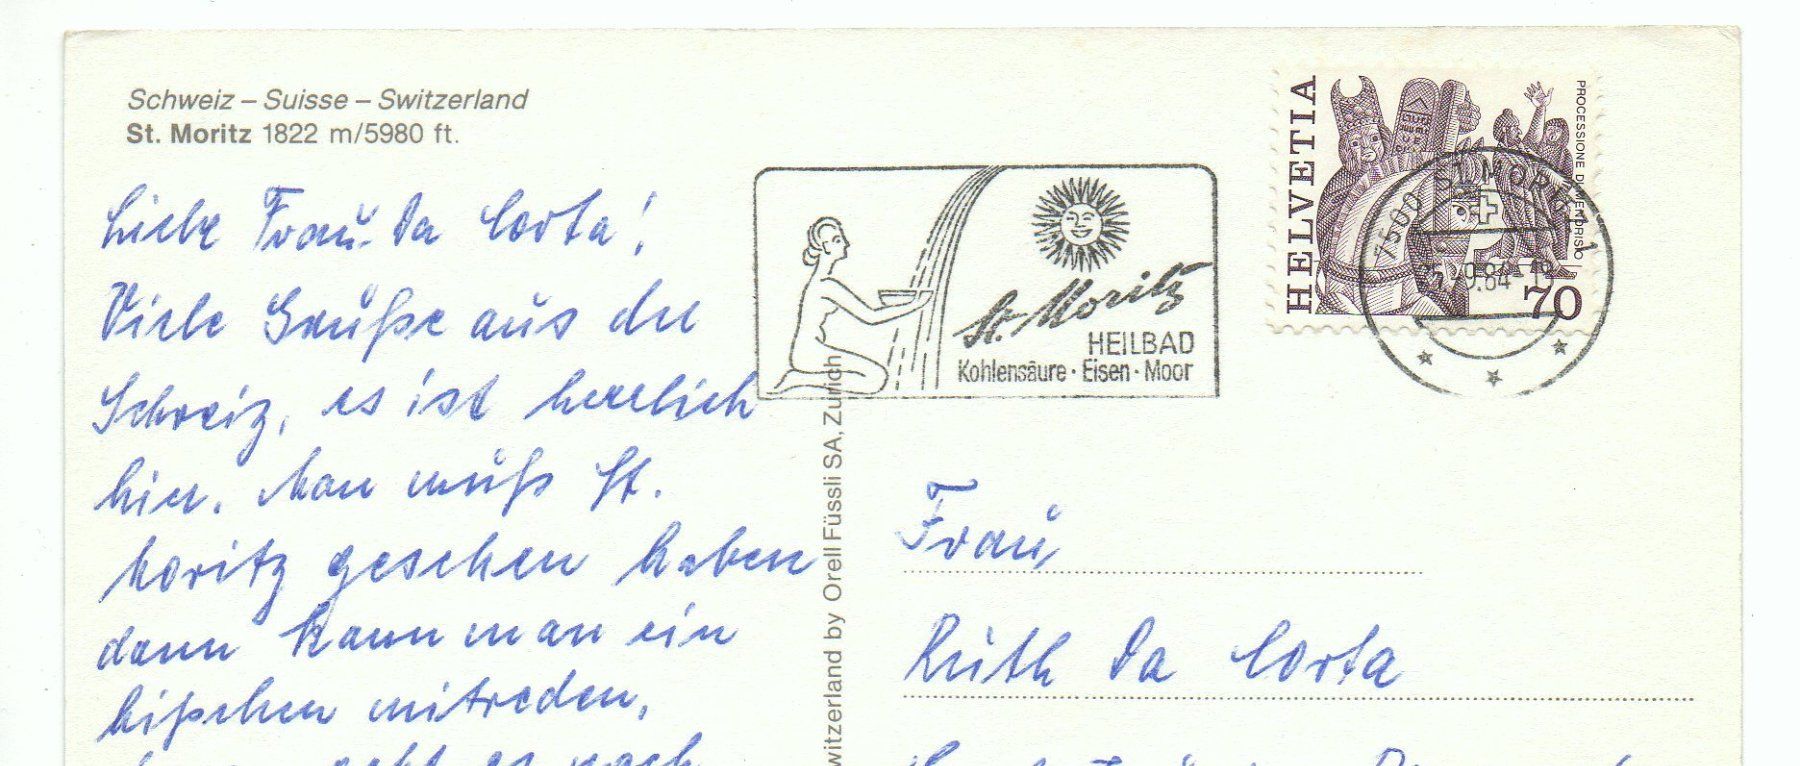 Schweiz – Suisse – Switzerland
St. Moritz 1822 m/5980 ft.
Liebe Frau Da Corta!
Viele Grüße aus der
Schweiz, es ist herrlich
hier. Man muß St.
Moritz gesehen haben
dann kann man ein
bißchen mitreden,
geht es noch
St. Moritz
HEILBAD
Kohlensäure · Eisen · Moor
HELVETIA
PROCESSIONE DI MENDRISIO
70
7500 ST. MORITZ 1
witzerland by Orell Füssli SA, Zürich
Frau
Ruth Da Corta